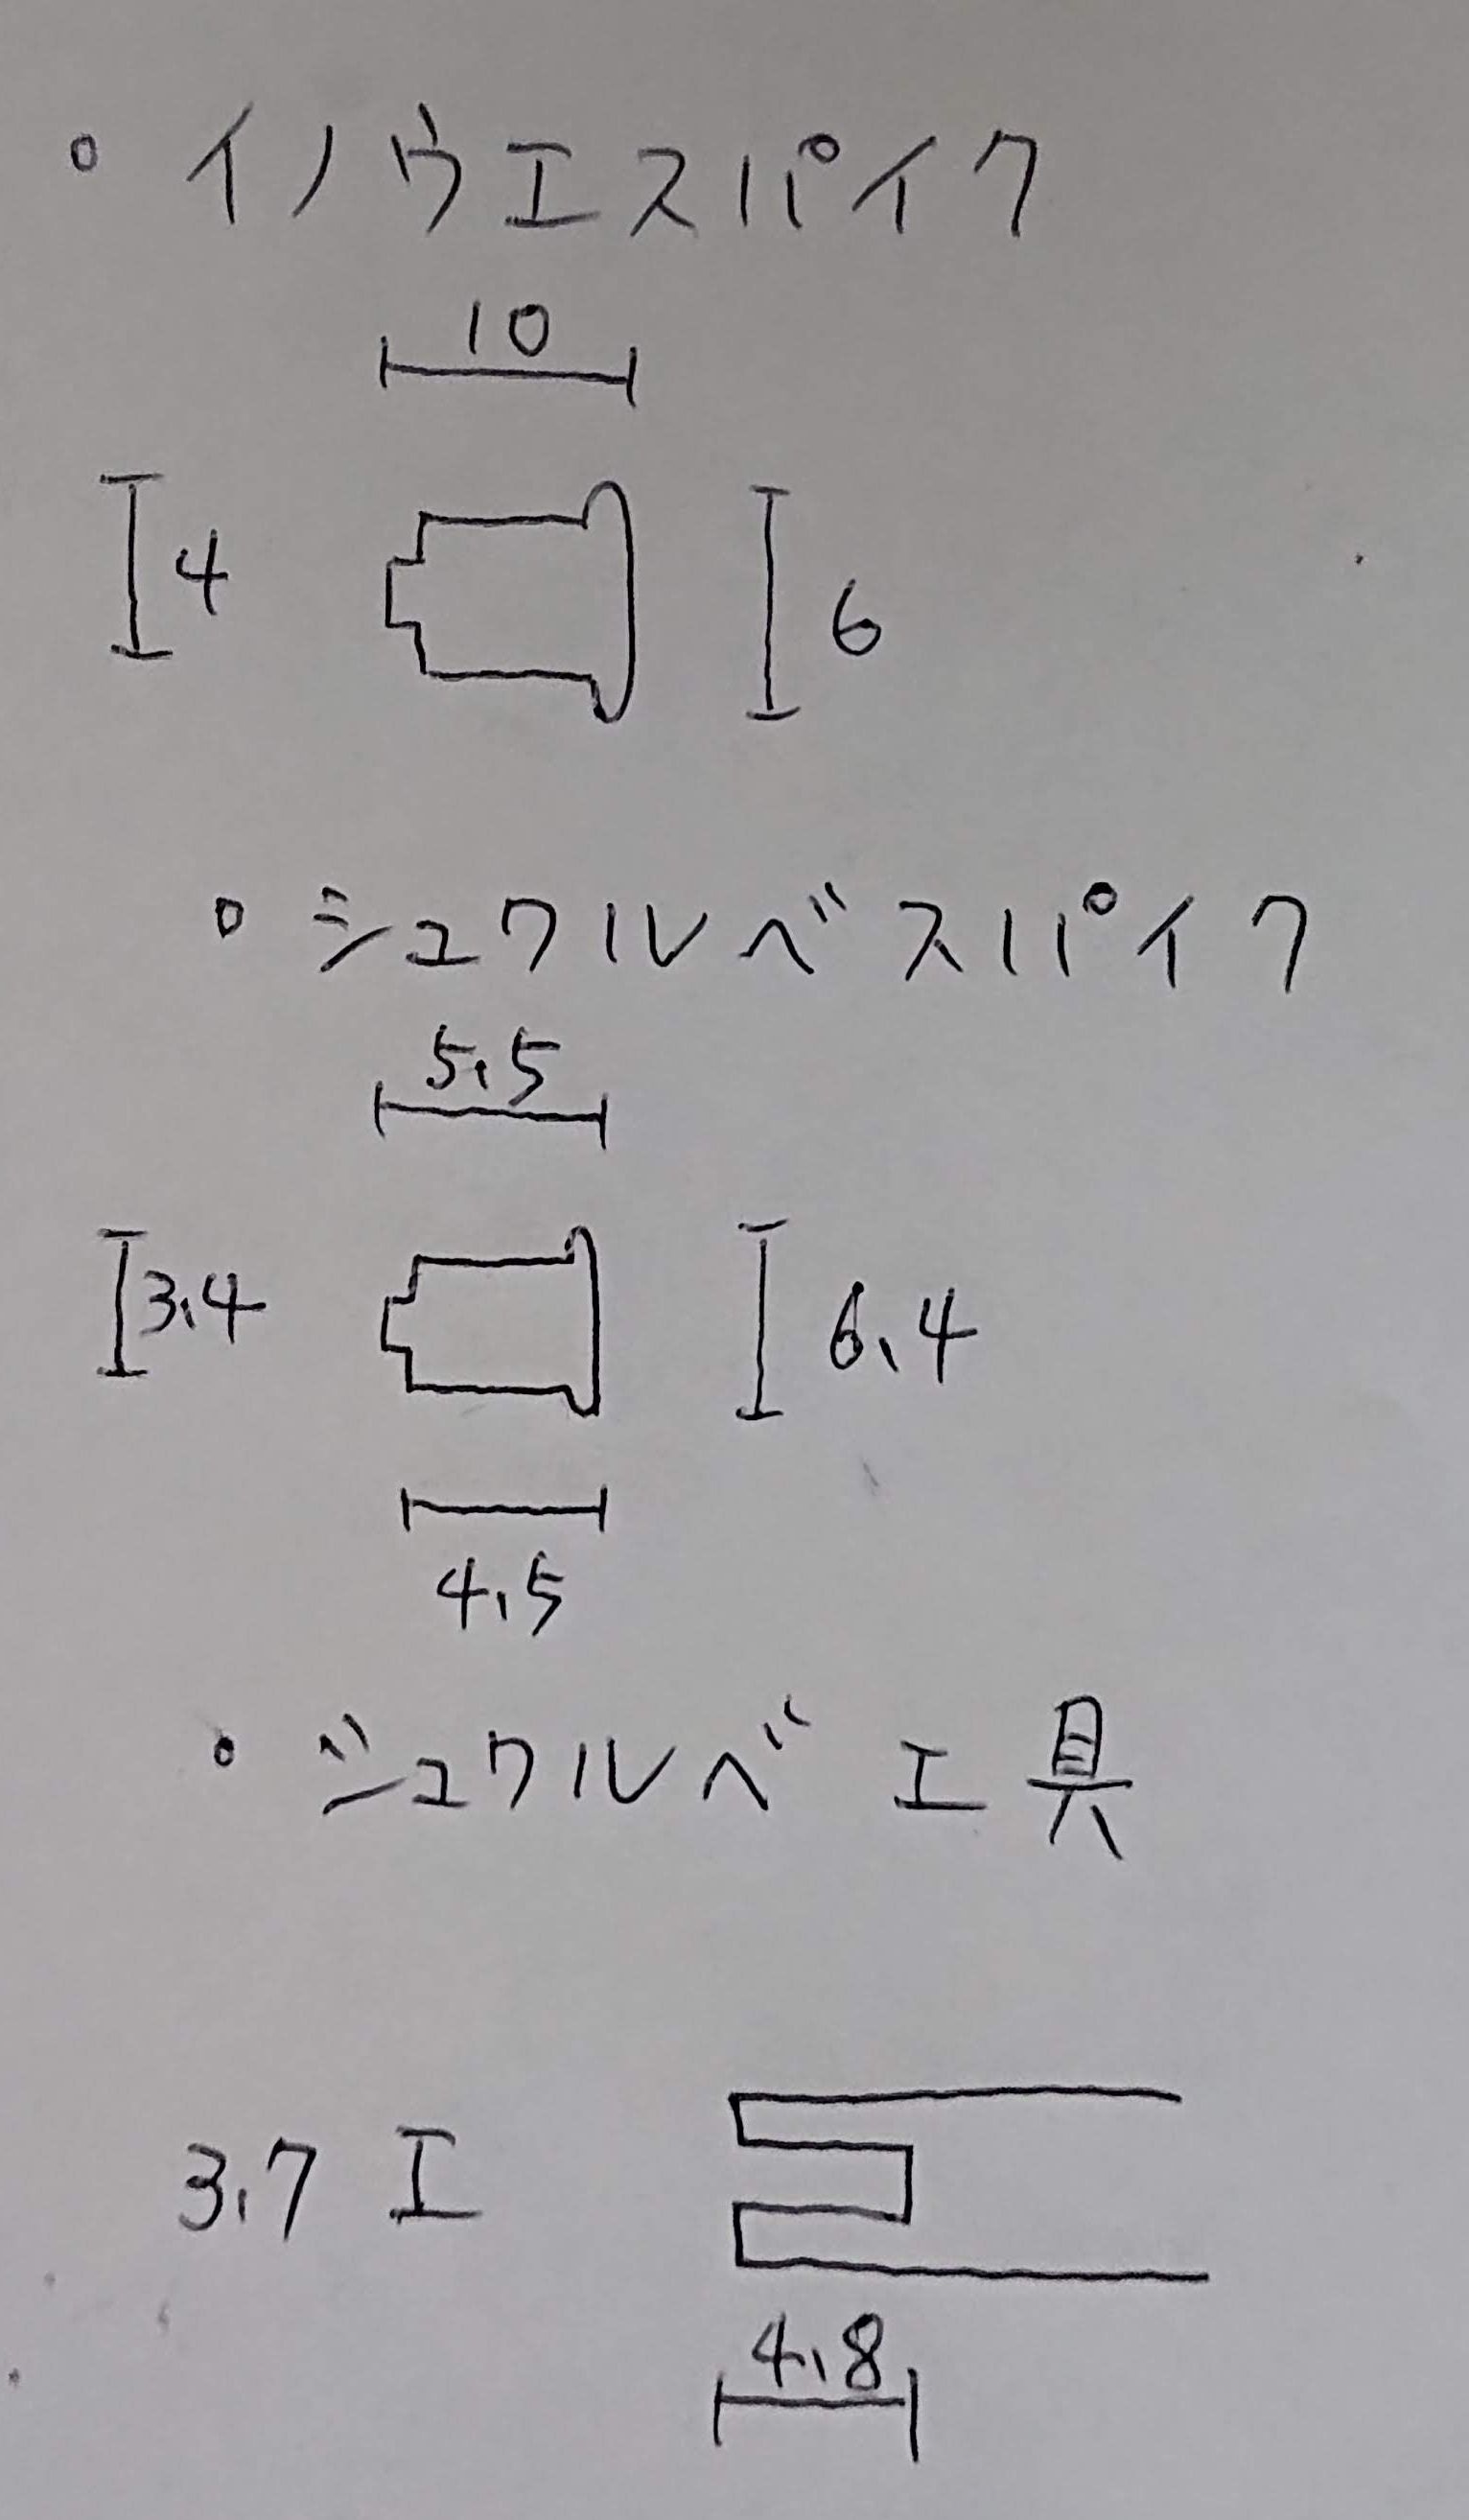 。イノウエスパイク
10
4
6
。シュワルベスパイク
5.5
3.4
6.4
4.5
。シュワルベ工具
3.7
4.8